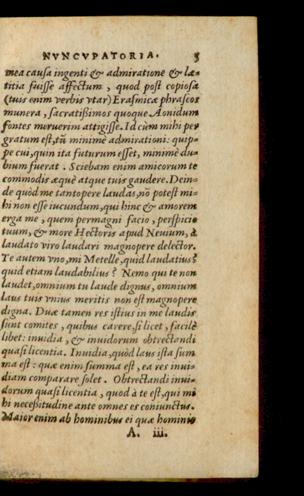 NVNCVPATORIA. 5
mea causa ingenti & admiratione & læ-
titia fuisse affectum, quod post copiosa
(tuis enim verbis vtar) Erasmicæ phraseos
munera, sacratissimos quoque Aonidum
fontes meruerim attigisse. Id cùm mihi per
gratum est, tũ minimè admirationi: quip-
pe cui, quin ita futurum esset, minimè du-
bium fuerat. Sciebam enim amicorum te
commodis æquè atque tuis gaudere. Dein-
de quòd me tantopere laudas, nõ potest mi-
hi non esse iucundum, qui hinc & amorem
erga me, quem permagni facio, perspicio
tuum, & more Hectoris apud Neuium, à
laudato viro laudari magnopere delector.
Te autem vno, mi Metelle, quid laudatius?
quid etiam laudabilius? Nemo qui te non
laudet, omnium tu laude dignus, omnium
laus tuis vnius meritis non est magnopere
digna. Duæ tamen res istius in me laudis
sunt comites, quibus carere, si licet, facilè
libet: inuidia, & inuidorum obtrectandi
quasi licentia. Inuidia, quòd laus ista sum
ma est: quæ enim summa est, ea res inui-
diam comparare solet. Obtrectandi inui-
dorum quasi licentia, quod à te est, qui mi
hi necessitudine ante omnes es coniunctus.
Maior enim ab hominibus ei quæ hominis
A. iii.